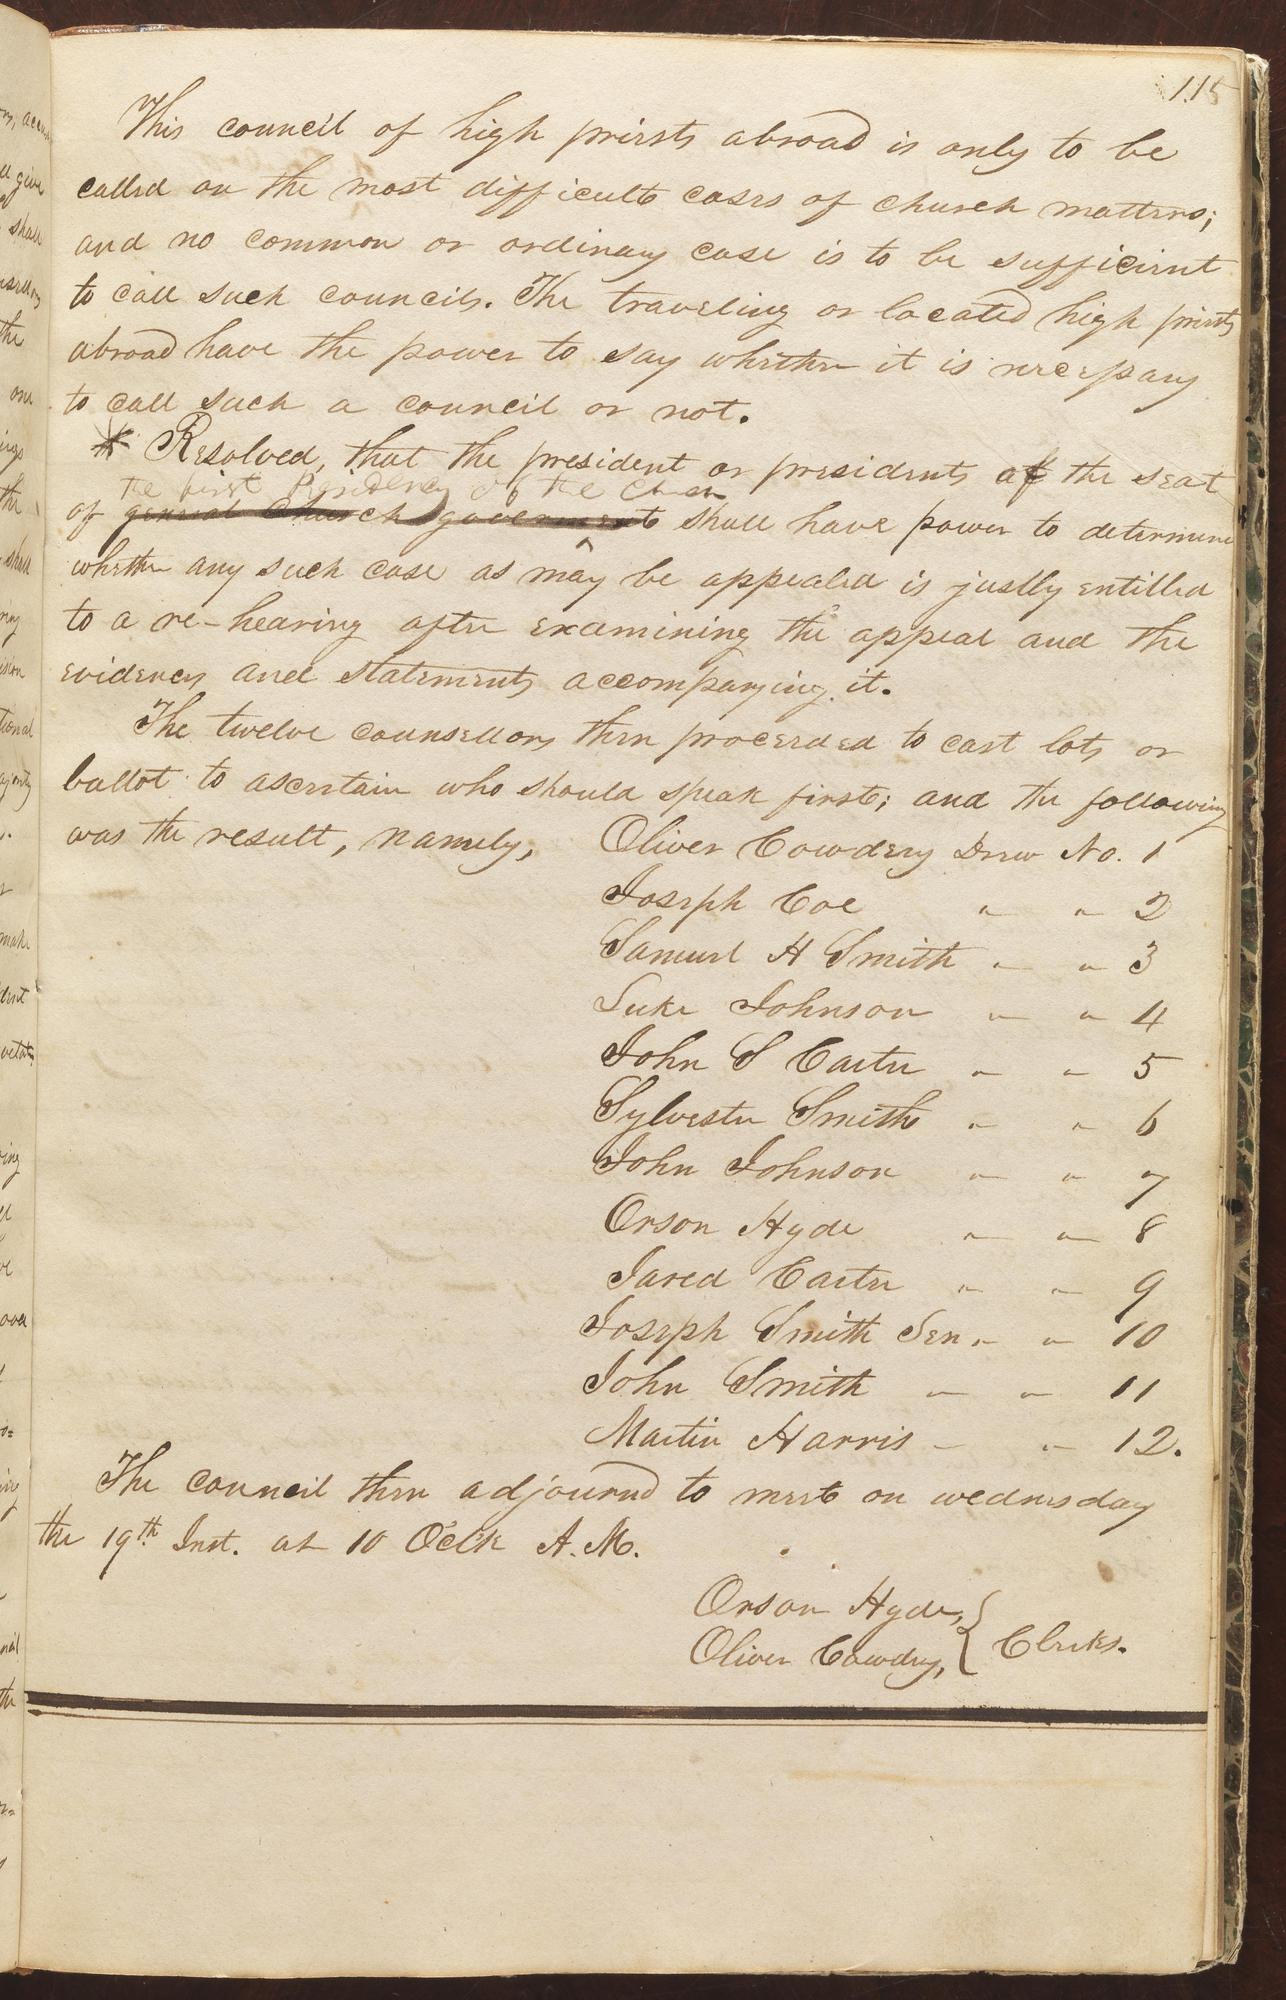 115
This council of high priests abroad is only to be
called on the most difficult cases of church matters;
and no common or ordinary case is to be sufficient
to call such councils. The traveling or located high priests
abroad have the power to say whether it is necessary
to call such a council or not.
* Resolved, that the president or presidents of the seat
the first Presidency of the Church
of general Church government shall have power to determine
whether any such case as may be appealed is justly entitled
to a re-hearing after examining the appeal and the
evidences and statements accompanying it.
The twelve counsellors then proceeded to cast lots or
ballot to ascertain who should speak first; and the following
was the result, namely, Oliver Cowdery Drew No. 1
Joseph Coe " " 2
Samuel H Smith " " 3
Luke Johnson " " 4
John S Carter " " 5
Sylvester Smith " " 6
John Johnson " " 7
Orson Hyde " " 8
Jared Carter " " 9
Joseph Smith Sen. " " 10
John Smith " " 11
Martin Harris " " 12.
The council then adjournd to meet on wednesday
the 19th Inst. at 10 O'clk A.M.
Orson Hyde,
Oliver Cowdry, } Clerks.